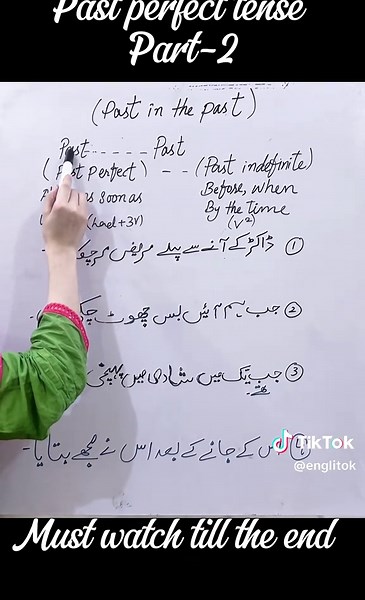 Past perfect tense
Part-2
(Past in the past)
Past - - - - - Past
(Past Perfect) - - (Past indefinite)
as soon as Before, when
(had+3V) By the Time
(V²)
① ڈاکٹر کے آنے سے پہلے مریض مر
② جب ہم آئیں بس چھوٹ
③ جب تک میں شادی میں پہنچی
کے جانے کے بعد اس نے مجھے بتایا۔
TikTok
@englitok
Must watch till the end